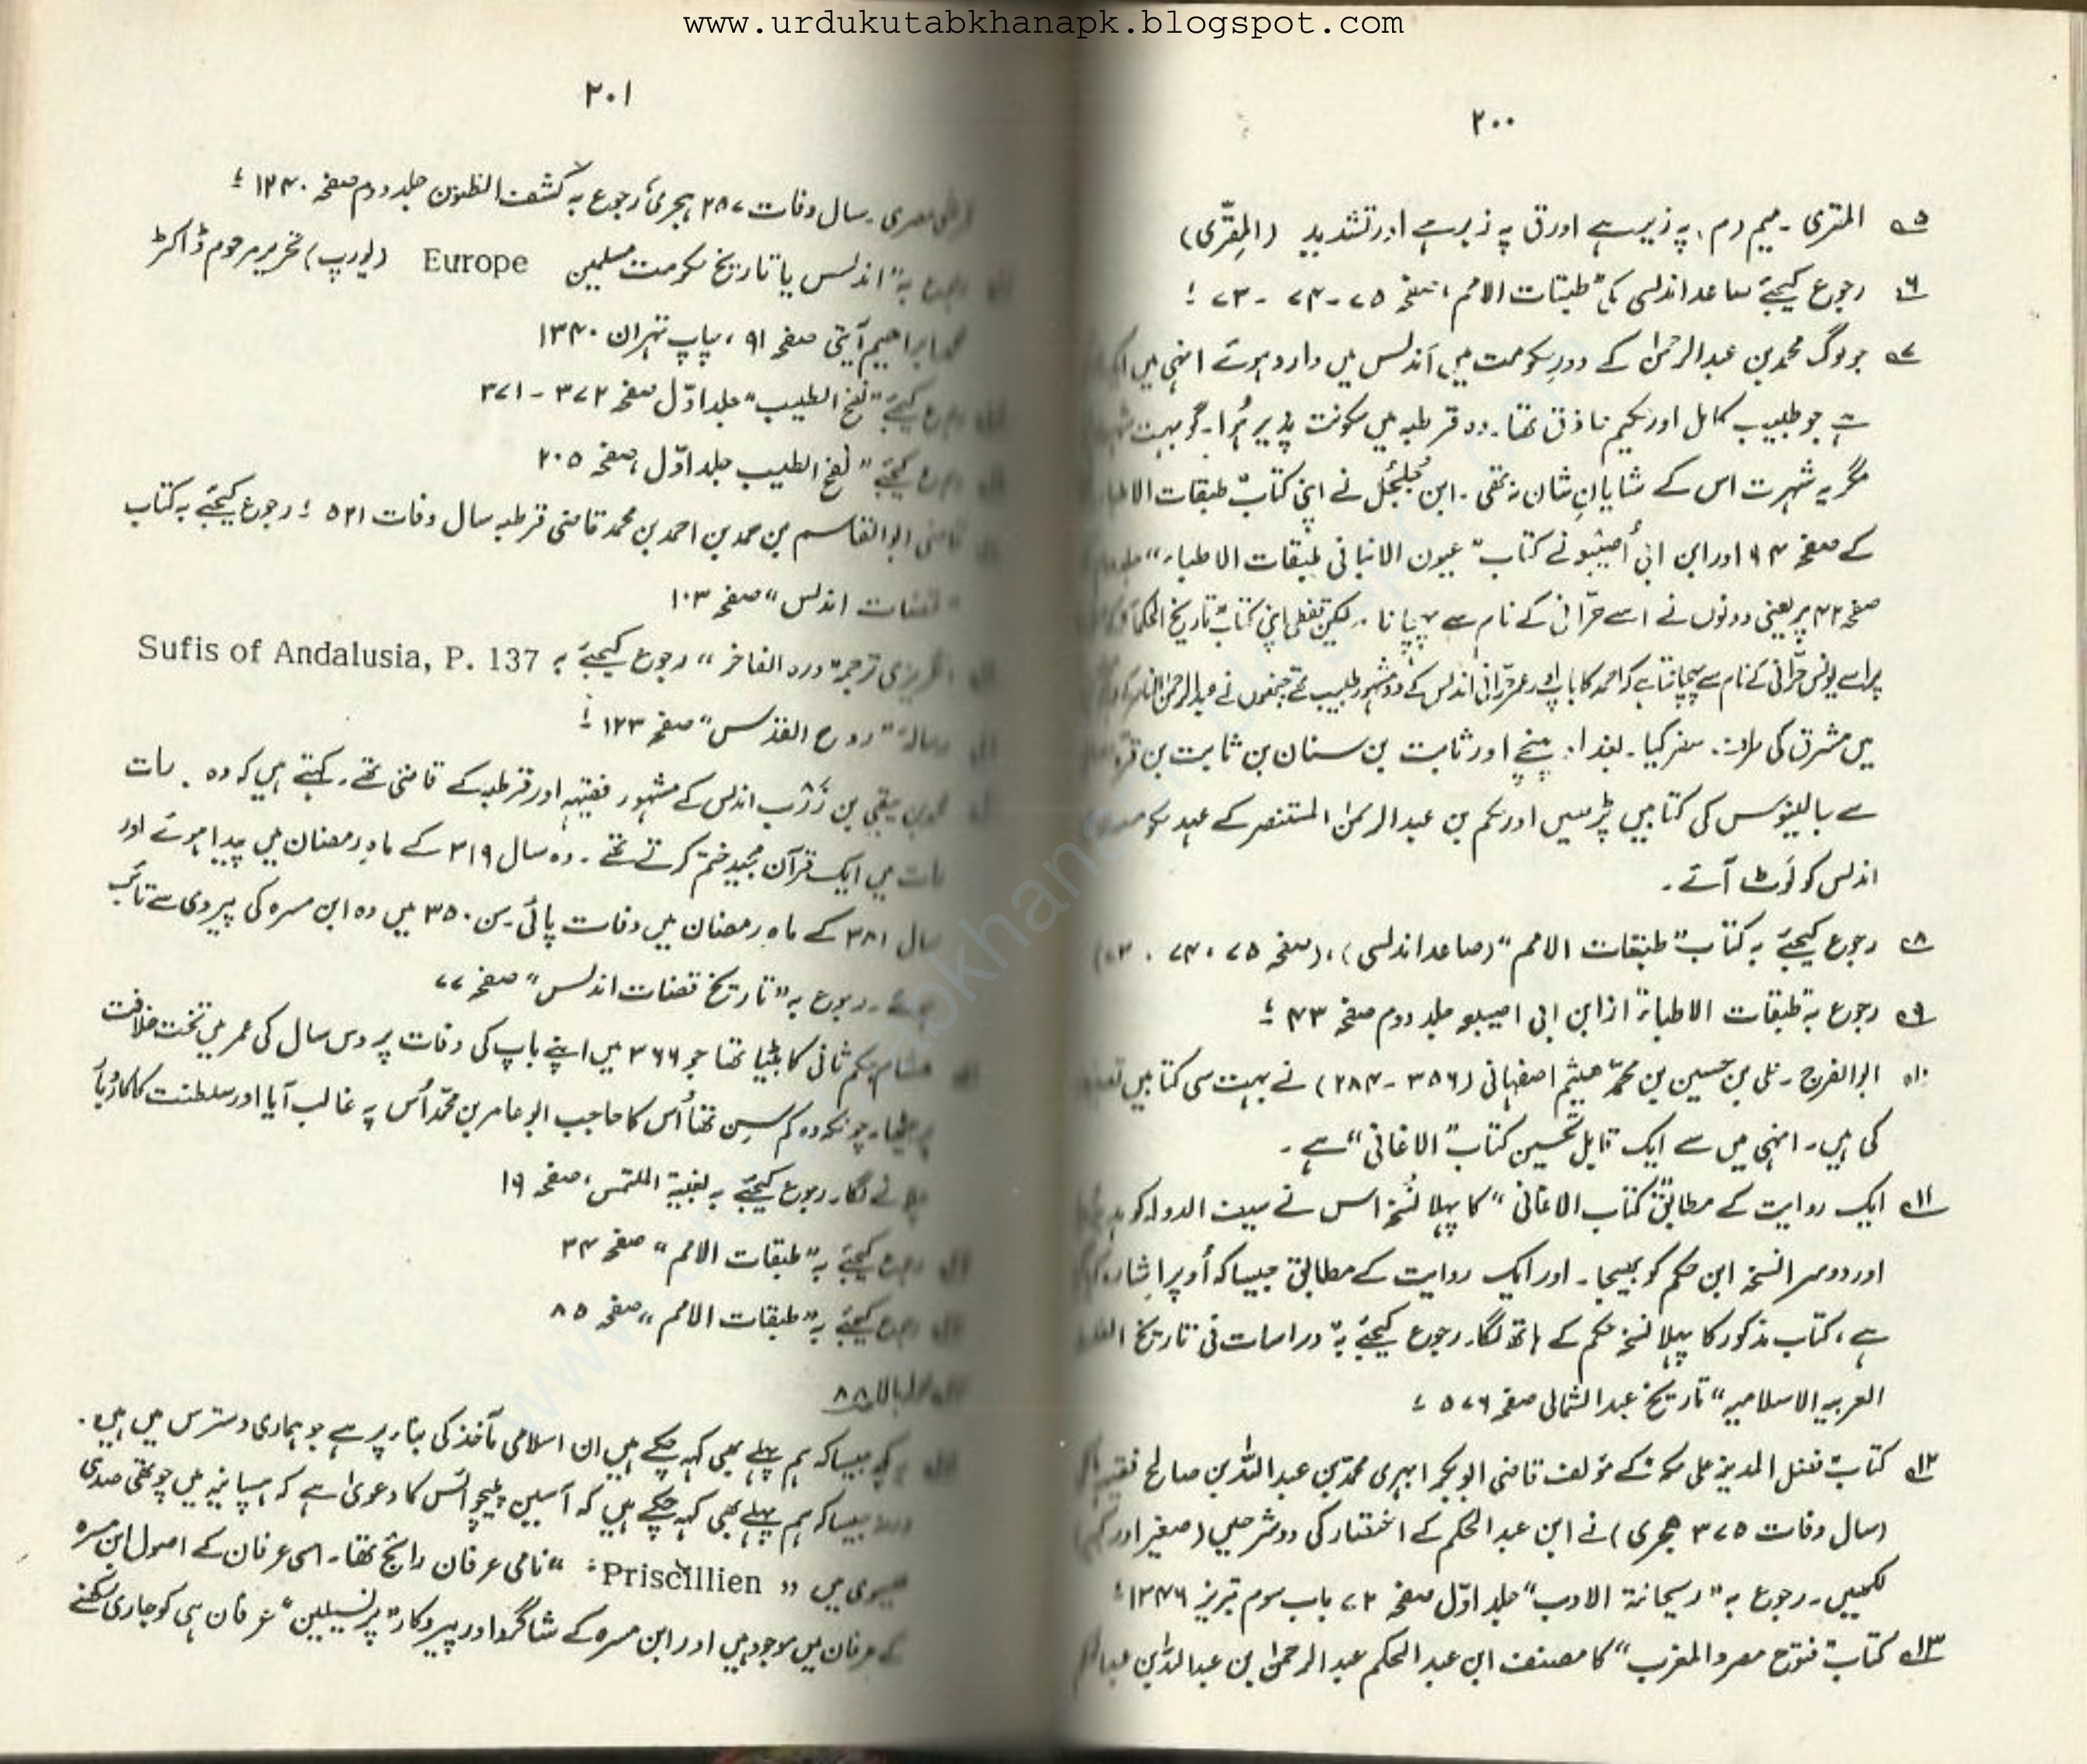 www.urdukutabkhanapk.blogspot.com
۲۰۰
۵ المقری ۔ میم (م) پہ زیر ہے اور ق پہ زبر ہے اور تشدید (المِقرّی)
۶ رجوع کیجئے صاعد اندلسی کی "طبقات الامم" صفحہ ۷۵-۷۴-۷۳ ؛
۷ جو لوگ محمد بن عبدالرحمٰن کے دورِ حکومت میں اندلس میں وارد ہوئے انہی میں ایک
ہے جو طبیب کامل اور حکیم حاذق تھا۔ وہ قرطبہ میں سکونت پذیر ہُوا۔ گو بہت
مگر یہ شہرت اس کے شایانِ شان نہ تھی ۔ ابن جُلجُل نے اپنی کتاب "طبقات الاطباء
کے صفحہ ۹۴ اور ابن ابی اُصیبو نے کتاب "عیون الانبا فی طبقات الاطباء"
صفحہ ۴۲ پر یعنی دونوں نے اسے حرّانی کے نام سے پہچانا ۔ لیکن قفطی اپنی کتاب "تاریخ الحکما"
پر اسے یونس حرّانی کے نام سے پہچانتا ہے کہ احمد کا باپ اور عمر حرّانی اندلس کے دو مشہور طبیب تھے جنھوں نے عبدالرحمٰن الناصر کے
میں مشرق کی طرف سفر کیا۔ بغداد پہنچے اور ثابت بن سنان بن ثابت بن قرہ
سے جالینوس کی کتابیں پڑھیں اور حکم بن عبدالرحمٰن المستنصر کے عہد حکومت
اندلس کو لَوٹ آئے ۔
۸ رجوع کیجئے بہ کتاب "طبقات الامم" (صاعد اندلسی)، (صفحہ ۷۵، ۷۴، ۷۳)
۹ رجوع بہ طبقات الاطباء از ابن ابی اصیبو جلد دوم صفحہ ۴۳ ؛
۱۰ ابوالفرج ۔ علی بن حسین بن محمّد ہیثم اصفہانی (۳۵۶-۲۸۴) نے بہت سی کتابیں
کی ہیں ۔ انہی میں سے ایک قابل تحسین کتاب "الاغانی" ہے ۔
۱۱ ایک روایت کے مطابق "کتاب الاغانی" کا پہلا نُسخہ اس نے سیف الدولہ کو
اور دوسرا نسخہ ابن حکم کو بھیجا ۔ اور ایک روایت کے مطابق جیسا کہ اُوپر اشارہ
ہے، کتاب مذکور کا پہلا نسخہ حکم کے ہاتھ لگا۔ رجوع کیجئے بہ "دراسات فی تاریخ
العربیہ الاسلامیہ" تاریخ عبدالشمالی صفحہ ۵۷۶ ؛
۱۲ کتاب "فضل المدینہ علی مکہ" کے مؤلف قاضی ابوبکر ابہری محمد بن عبداللہ بن صالح فقیہہ
(سال وفات ۳۷۵ ہجری) نے ابن عبدالحکم کے اختصار کی دو شرحیں (صغیر اور کبیر)
لکھیں ۔ رجوع بہ "ریحانۃ الادب" جلد اوّل صفحہ ۷۲ باب سوم تبریز ۱۳۴۶ ؛
۱۳ کتاب "فتوح مصر و المغرب" کا مصنف ابن عبدالحکم عبدالرحمٰن بن عبداللہ بن
۲۰۱
مصری ۔ سال وفات ۲۸۷ ہجری، رجوع بہ کشف الظنون جلد دوم صفحہ ۱۲۴۰ ؛
رجوع بہ "اندلس یا تاریخ حکومت مسلمین Europe (یورپ) تحریر مرحوم ڈاکٹر
محمد ابراھیم آیتی صفحہ ۹۱ ، چاپ تہران ۱۳۴۰
رجوع کیجئے "نفخ الطیب" جلد اوّل صفحہ ۳۷۲-۳۷۱
رجوع کیجئے "نفخ الطیب جلد اوّل، صفحہ ۲۰۵
قاضی ابوالقاسم بن حمد بن احمد بن محمد قاضی قرطبہ سال وفات ۵۲۱ ؛ رجوع کیجئے بہ کتاب
"قضات اندلس" صفحہ ۱۰۳
انگریزی ترجمہ "درہ الفاخر" رجوع کیجئے بہ Sufis of Andalusia, P. 137
رسالہ "روح القدس" صفحہ ۱۲۳ ؛
محمد بن یبقی بن زَرْب اندلس کے مشہور فقیہہ اور قرطبہ کے قاضی تھے ۔ کہتے ہیں کہ وہ . رات
رات میں ایک قرآن مجید ختم کرتے تھے ۔ وہ سال ۳۱۹ کے ماہِ رمضان میں پیدا ہوئے اور
سال ۳۸۱ کے ماہِ رمضان میں وفات پائی ۔ سن ۳۵۰ میں وہ ابن مسرہ کی پیروی سے تائب
ہوئے ۔ رجوع بہ "تاریخ قضات اندلس" صفحہ ۷۷
ھشام حکم ثانی کا بیٹا تھا جو ۳۶۶ میں اپنے باپ کی وفات پر دس سال کی عمر میں تخت خلافت
پر بیٹھا۔ چونکہ وہ کم سِن تھا اُس کا حاجب ابوعامر بن محمّد اُس پہ غالب آیا اور سلطنت کا کاروبار
چلانے لگا۔ رجوع کیجئے بہ بغیۃ الملتمس، صفحہ ۱۹
رجوع کیجئے بہ "طبقات الامم" صفحہ ۳۴
رجوع کیجئے بہ "طبقات الامم" صفحہ ۸۵
بالا ۸۸
جیسا کہ ہم پہلے بھی کہہ چکے ہیں ان اسلامی مآخذ کی بناء پر ہے جو ہماری دسترس میں ہیں ۔
ورنہ جیسا کہ ہم پہلے بھی کہہ چکے ہیں کہ آسین پلیچوائس کا دعویٰ ہے کہ ہسپانیہ میں چوتھی صدی
عیسوی میں " Priscillien " نامی عرفان رائج تھا۔ اسی عرفان کے اصول ابن مسرہ
کے عرفان میں موجود ہیں اور ابن مسرہ کے شاگرد اور پیروکار "پرنسیلیین" عرفان ہی کو جاری رکھنے